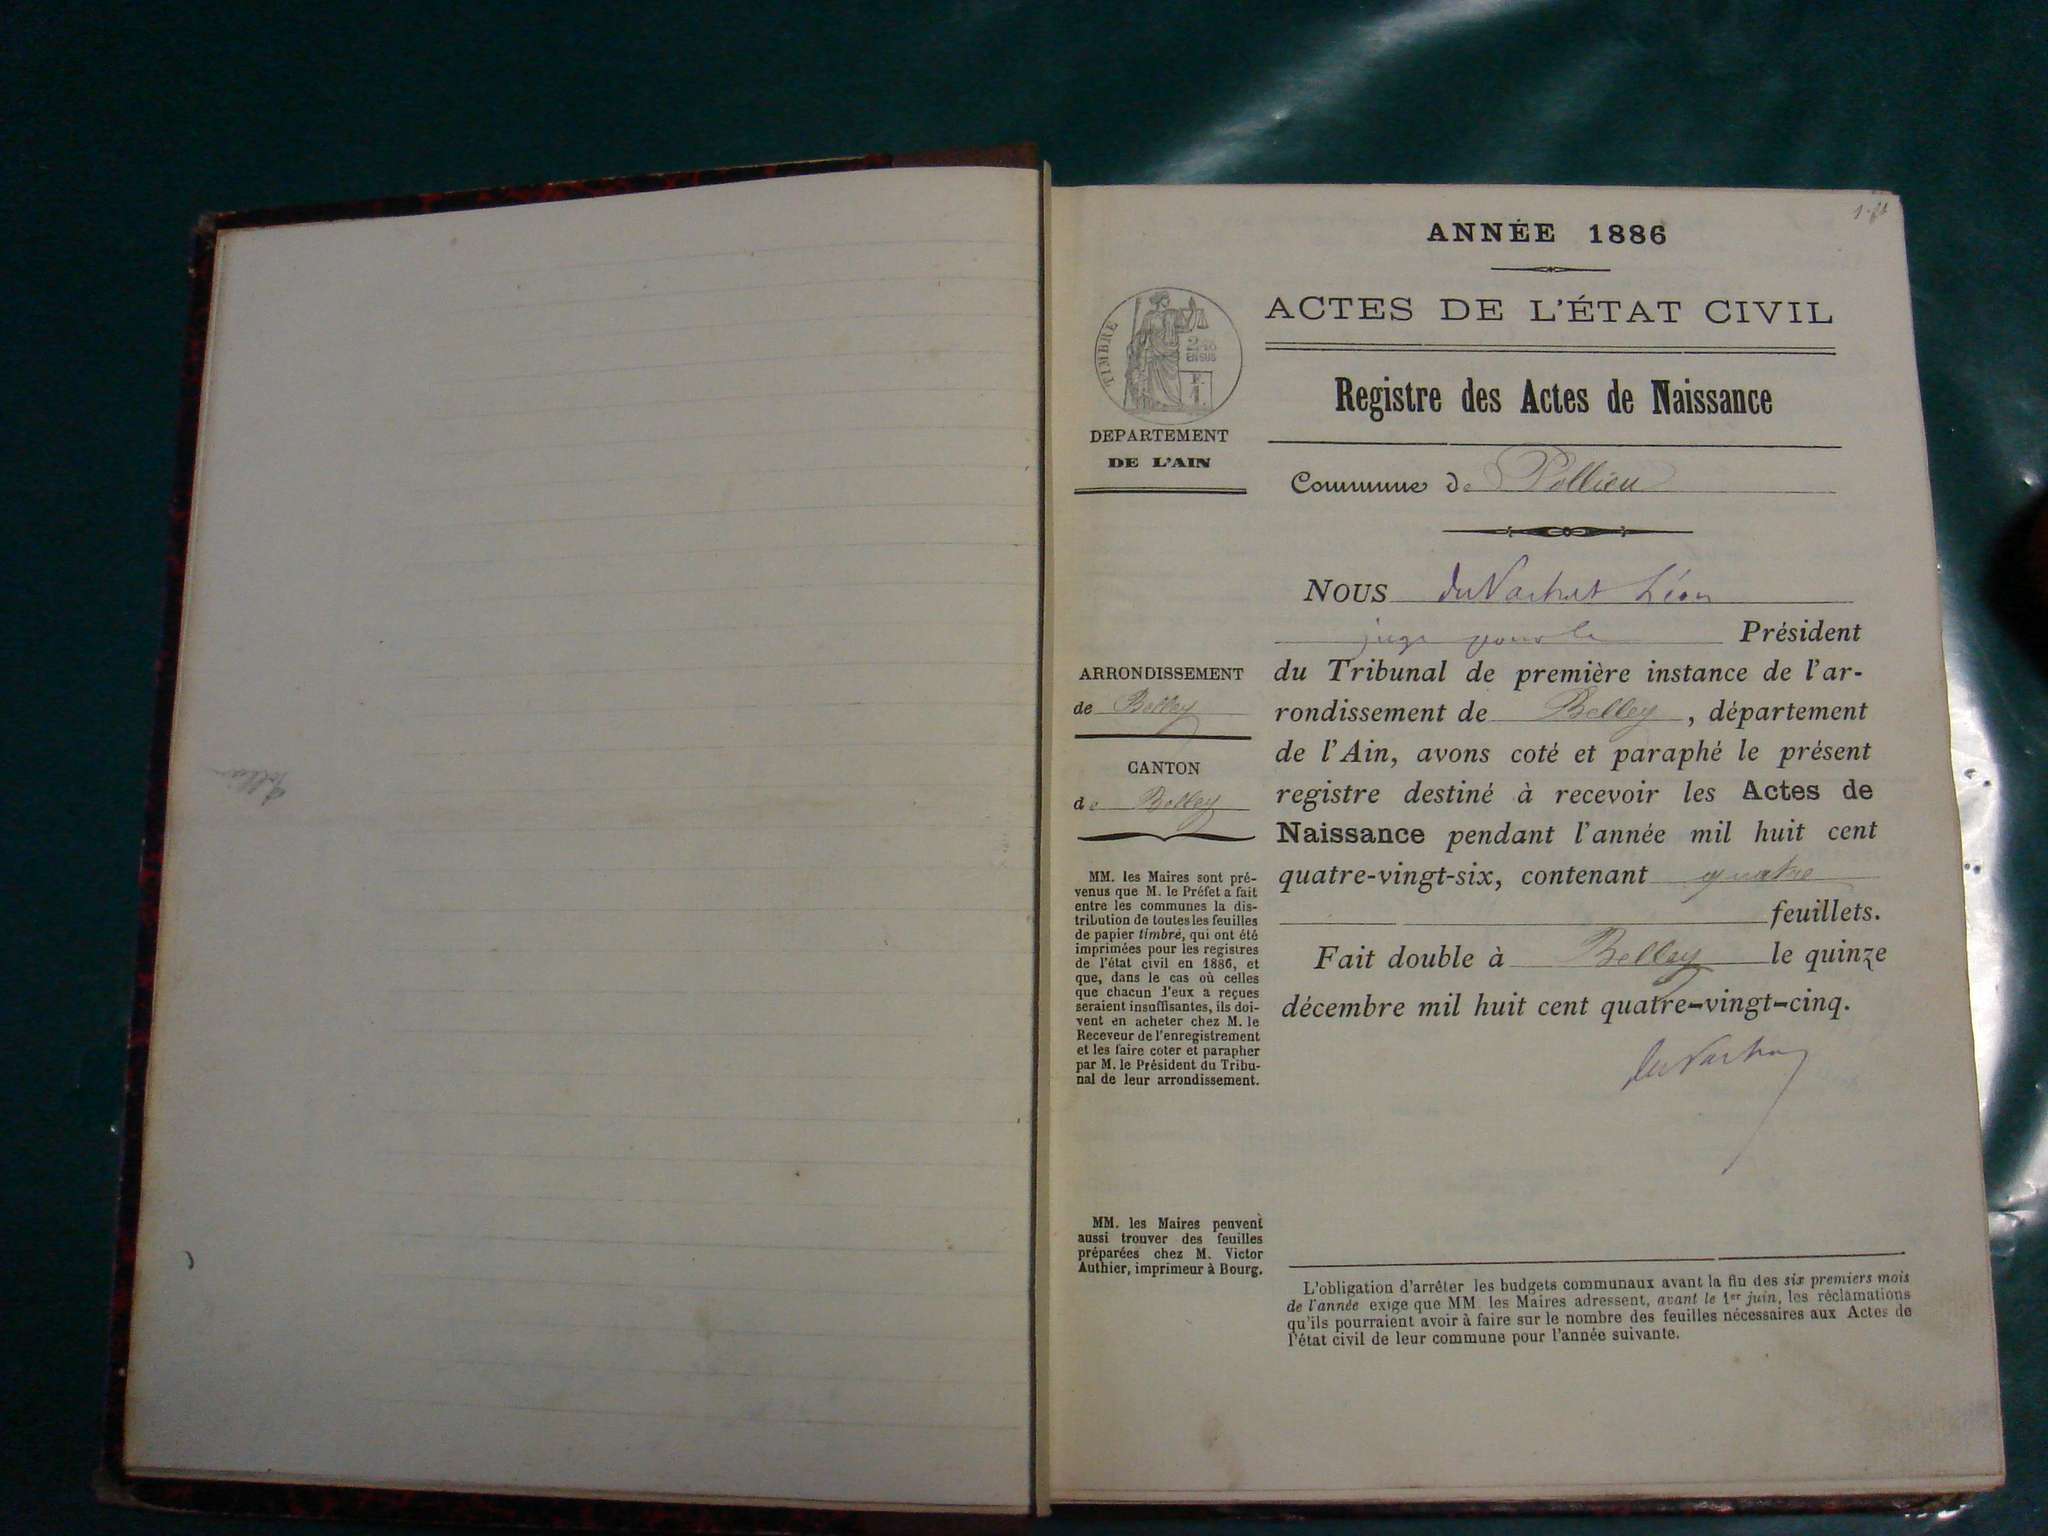 ANNÉE 1886
ACTES DE L'ÉTAT CIVIL
Registre des Actes de Naissance
Commune de Pollieu
TIMBRE
DEPARTEMENT
DE L'AIN
ARRONDISSEMENT
de Belley
CANTON
de Belley
MM. les Maires sont pré-
venus que M. le Préfet a fait
entre les communes la dis-
tribution de toutes les feuilles
de papier timbré, qui ont été
imprimées pour les registres
de l'état civil en 1886, et
que, dans le cas où celles
que chacun d'eux a reçues
seraient insuffisantes, ils doi-
vent en acheter chez M. le
Receveur de l'enregistrement
et les faire coter et parapher
par M. le Président du Tribu-
nal de leur arrondissement.
MM. les Maires peuvent
aussi trouver des feuilles
préparées chez M. Victor
Authier, imprimeur à Bourg.
NOUS Léon
juge pour le Président
du Tribunal de première instance de l'ar-
rondissement de Belley, département
de l'Ain, avons coté et paraphé le présent
registre destiné à recevoir les Actes de
Naissance pendant l'année mil huit cent
quatre-vingt-six, contenant quatre
feuillets.
Fait double à Belley le quinze
décembre mil huit cent quatre-vingt-cinq.
L'obligation d'arrêter les budgets communaux avant la fin des six premiers mois
de l'année exige que MM. les Maires adressent, avant le 1er juin, les réclamations
qu'ils pourraient avoir à faire sur le nombre des feuilles nécessaires aux Actes de
l'état civil de leur commune pour l'année suivante.